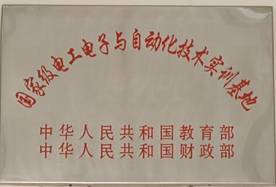 国家级电工电子与自动化技术实训基地
中华人民共和国教育部
中华人民共和国财政部